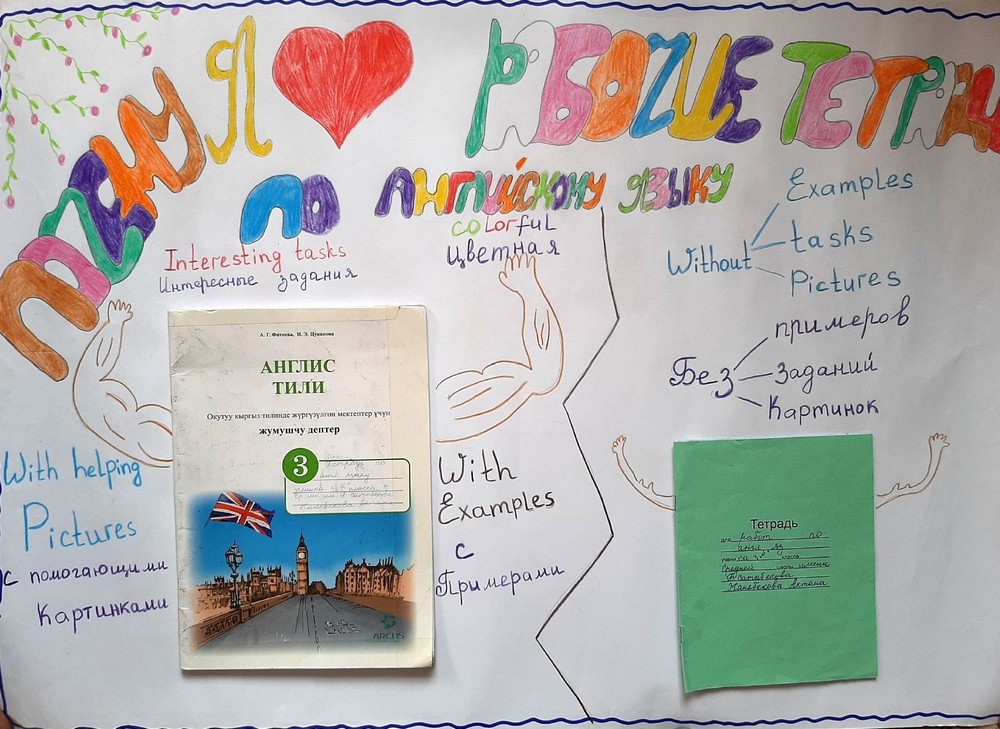 ПОЧЕМУ Я РАБОЧИЕ ТЕТРАДИ
ПО АНГЛИЙСКОМУ ЯЗЫКУ
Interesting tasks
Интересные задания
colorful
Цветная
Without
Examples
tasks
Pictures
Без
примеров
Заданий
Картинок
А. Г. Фатнева, Н. Э. Цуканова
АНГЛИС
ТИЛИ
Окутуу кыргыз тилинде жүргүзүлгөн мектептер үчүн
жумушчу дептер
3
ARCUS
With helping
Pictures
с помогающими
Картинками
With
Examples
с
Примерами
Тетрадь
для работ по
англ. яз
средней имени